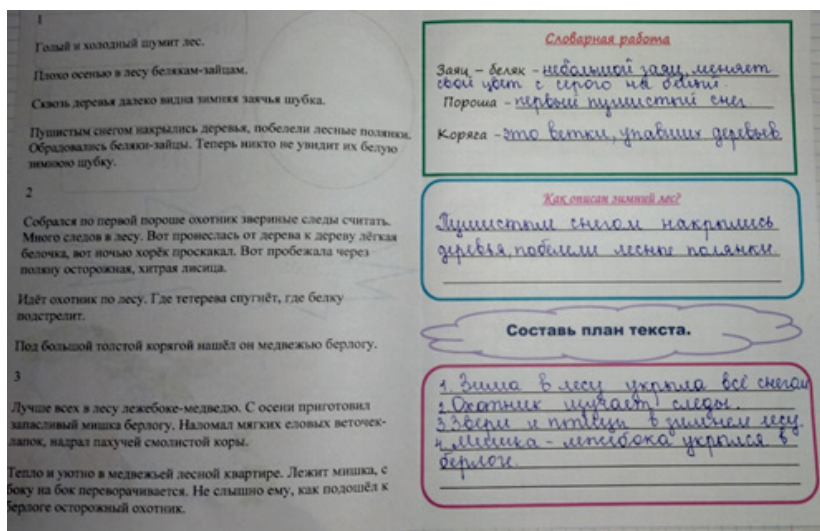 1
Голый и холодный шумит лес.
Плохо осенью в лесу белякам-зайцам.
Сквозь деревья далеко видна зимняя заячья шубка.
Пушистым снегом накрылись деревья, побелели лесные полянки.
Обрадовались беляки-зайцы. Теперь никто не увидит их белую
зимнюю шубку.
2
Собрался по первой пороше охотник звериные следы считать.
Много следов в лесу. Вот пронеслась от дерева к дереву лёгкая
белочка, вот ночью хорёк проскакал. Вот пробежала через
поляну осторожная, хитрая лисица.
Идёт охотник по лесу. Где тетерева спугнёт, где белку
подстрелит.
Под большой толстой корягой нашёл он медвежью берлогу.
3
Лучше всех в лесу лежебоке-медведю. С осени приготовил
запасливый мишка берлогу. Наломал мягких еловых веточек-
лапок, надрал пахучей смолистой коры.
Тепло и уютно в медвежьей лесной квартире. Лежит мишка, с
боку на бок переворачивается. Не слышно ему, как подошёл к
берлоге осторожный охотник.
Словарная работа
Заяц – беляк - небольшой заяц, меняет
свой цвет с серого на белый.
Пороша - первый пушистый снег
Коряга - это ветки, упавших деревьев
Как описан зимний лес?
Пушистым снегом накрылись
деревья, побелели лесные полянки.
Составь план текста.
1. Зима в лесу укрыла всё снегом
2. Охотник изучает следы.
3. Звери и птицы в зимнем лесу.
4. Мишка - лежебока укрылся в
берлоге.